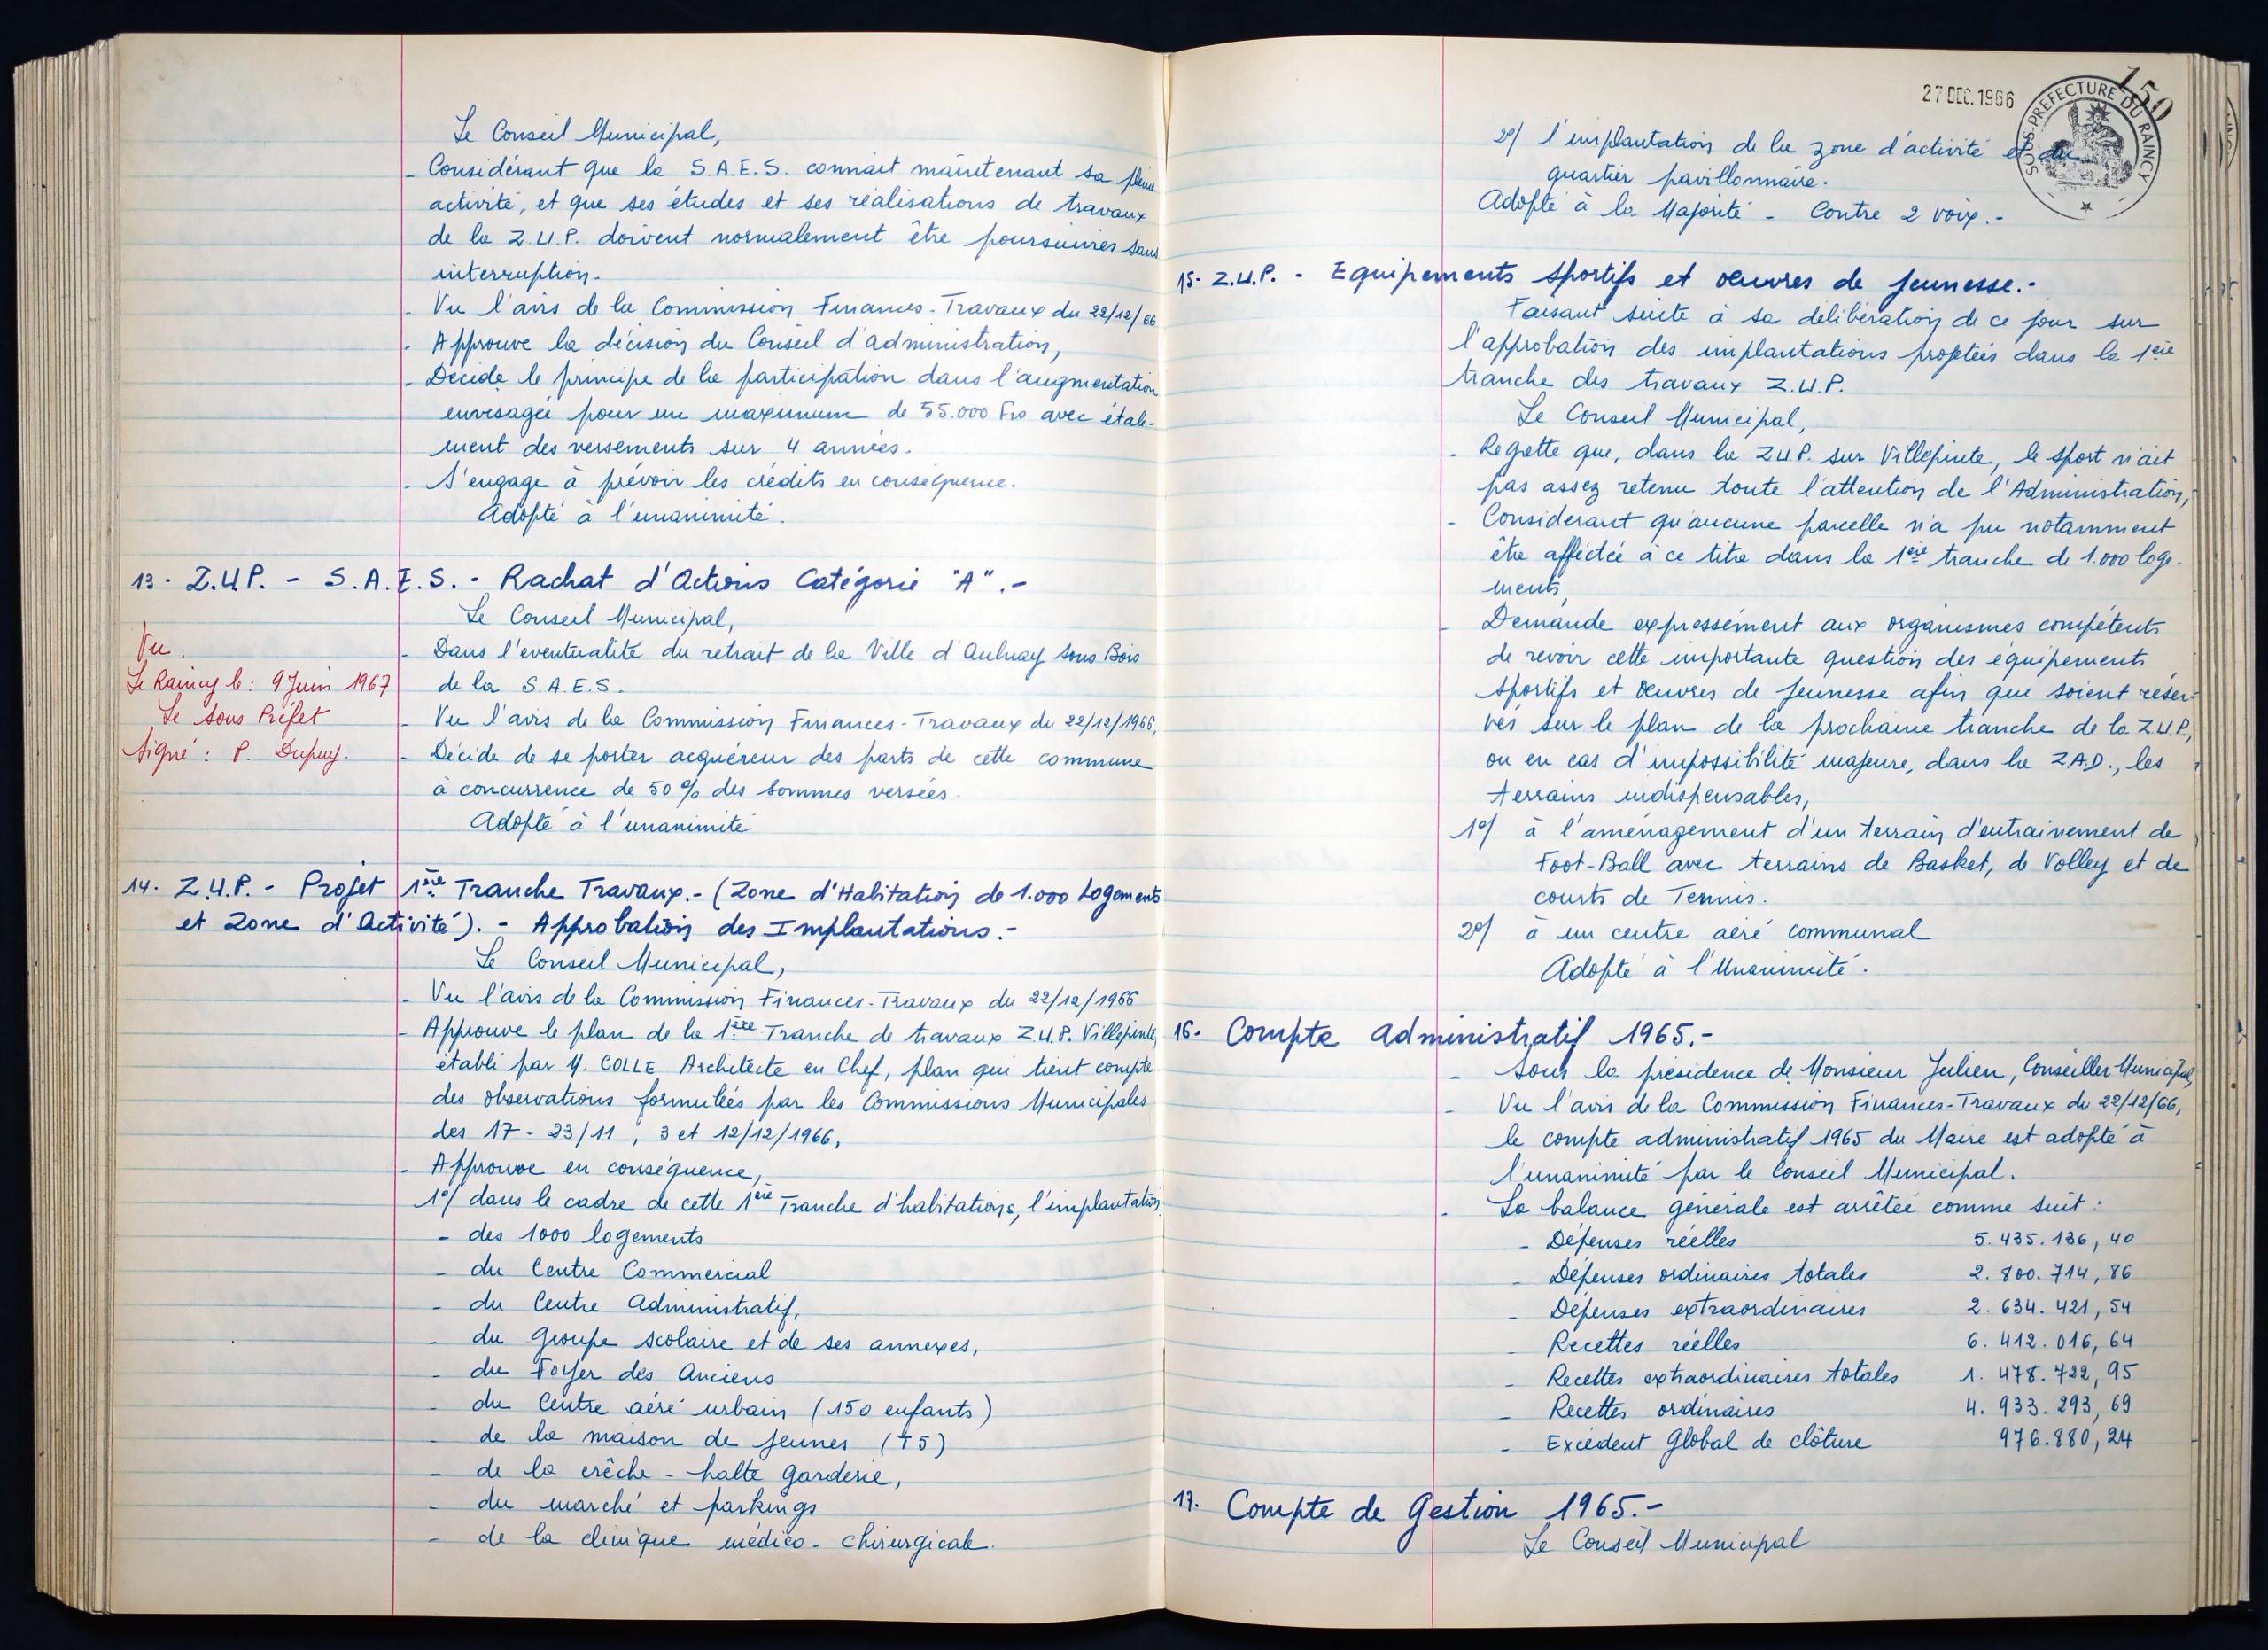 Le Conseil Municipal,
- Considérant que la S.A.E.S. connait maintenant sa pleine
activité, et que ses études et ses réalisations de travaux
de la Z.U.P. doivent normalement être poursuivies sans
interruption.
- Vu l'avis de la Commission Finances-Travaux du 22/12/66
- Approuve la décision du Conseil d'administration,
- Décide le principe de la participation dans l'augmentation
envisagée pour un maximum de 55.000 Frs avec étale-
ment des versements sur 4 années.
- S'engage à prévoir les crédits en conséquence.
Adopté à l'unanimité.
13. Z.U.P. - S.A.E.S. - Rachat d'Actions Catégorie "A".-
Le Conseil Municipal,
- Dans l'eventualité du retrait de la Ville d'Aulnay sous Bois
de la S.A.E.S.
- Vu l'avis de la Commission Finances-Travaux du 22/12/1966,
- Décide de se porter acquéreur des parts de cette commune
à concurrence de 50% des sommes versées.
Adopté à l'unanimité
Vu :
Le Raincy le : 9 Juin 1967
Le Sous Préfet
Signé : P. Dupuy.
14. Z.U.P. - Projet 1ère Tranche Travaux.- (Zone d'Habitation de 1.000 Logements
et Zone d'Activité). - Approbation des Implantations.-
Le Conseil Municipal,
- Vu l'avis de la Commission Finances-Travaux du 22/12/1966
- Approuve le plan de la 1ère Tranche de travaux Z.U.P. Villepinte,
établi par M. COLLE Architecte en Chef, plan qui tient compte
des observations formulées par les Commissions Municipales
des 17 - 23/11, 3 et 12/12/1966,
- Approuve en conséquence,
1º/ dans le cadre de cette 1ère Tranche d'habitations, l'implantation:
- des 1000 logements
- du Centre Commercial
- du Centre Administratif,
- du groupe scolaire et de ses annexes,
- du Foyer des Anciens
- du Centre aéré urbain (150 enfants)
- de la maison de jeunes (T5)
- de la crêche - halte garderie,
- du marché et parkings
- de la clinique médico-chirurgicale.
27 DEC. 1966
150
SOUS-PREFECTURE DU RAINCY
2º/ l'implantation de la zone d'activité et du
quartier pavillonnaire.
Adopté à la Majorité - Contre 2 voix.-
15- Z.U.P. - Equipements Sportifs et oeuvres de jeunesse.-
Faisant suite à sa délibération de ce jour sur
l'approbation des implantations projetées dans la 1ère
tranche des travaux Z.U.P.
Le Conseil Municipal,
- Regette que, dans la Z.U.P. sur Villepinte, le sport n'ait
pas assez retenu toute l'attention de l'Administration,
- Considerant qu'aucune parcelle n'a pu notamment
être affectée à ce titre dans la 1ère tranche de 1.000 loge-
ments,
- Demande expressément aux organismes compétents
de revoir cette importante question des équipements
sportifs et oeuvres de jeunesse afin que soient réser-
vés sur le plan de la prochaine tranche de la Z.U.P.,
ou en cas d'impossibilité majeure, dans la Z.A.D., les
terrains indispensables,
1º/ à l'aménagement d'un terrain d'entrainement de
Foot-Ball avec terrains de Basket, de Volley et de
courts de Tennis.
2º/ à un centre aéré communal
Adopté à l'Unanimité.
16- Compte administratif 1965.-
- Sous la présidence de Monsieur Julien, Conseiller Municipal,
- Vu l'avis de la Commission Finances-Travaux du 22/12/66,
le compte administratif 1965 du Maire est adopté à
l'unanimité par le Conseil Municipal.
- La balance générale est arrêtée comme suit :
- Dépenses réelles 5.435.136,40
- Dépenses ordinaires totales 2.800.714,86
- Dépenses extraordinaires 2.634.421,54
- Recettes réelles 6.412.016,64
- Recettes extraordinaires totales 1.478.722,95
- Recettes ordinaires 4.933.293,69
- Excédent Global de clôture 976.880,24
17. Compte de Gestion 1965.-
Le Conseil Municipal